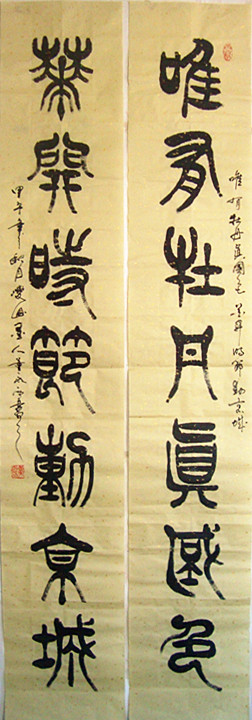 唯有牡丹真國色
唯有牡丹真國色 花開時節動京城
華開時節動京城
甲午年秋月